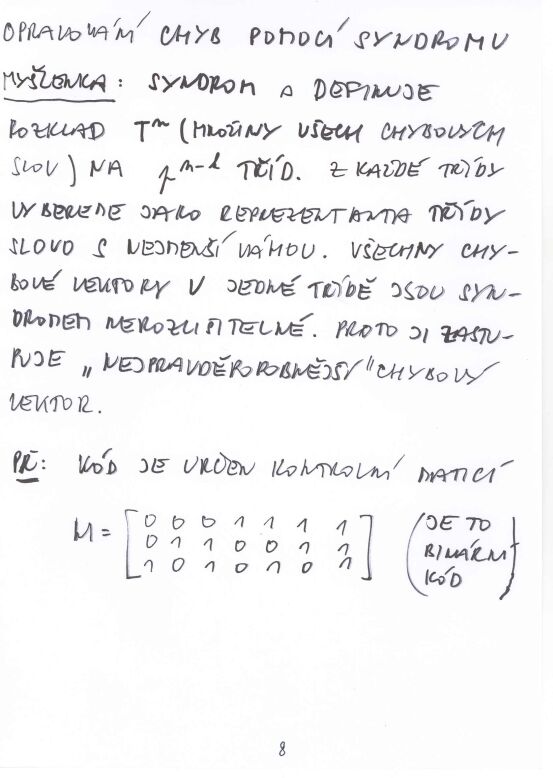 OPRAVOVÁNÍ CHYB POMOCÍ SYNDROMU
MYŠLENKA: SYNDROM Δ DEFINUJE
ROZKLAD Tⁿ (MNOŽINY VŠECH CHYBOVÝCH
SLOV) NA pⁿ⁻ᵏ TŘÍD. Z KAŽDÉ TŘÍDY
VYBEREME JAKO REPREZENTANTA TŘÍDY
SLOVO S NEJMENŠÍ VÁHOU. VŠECHNY CHY-
BOVÉ VEKTORY V JEDNÉ TŘÍDĚ JSOU SYN-
DROMEM NEROZLIŠITELNÉ. PROTO JI ZASTU-
PUJE „NEJPRAVDĚPODOBNĚJŠÍ" CHYBOVÝ
VEKTOR.
PŘ: KÓD JE URČEN KONTROLNÍ MATICÍ
M = [0 0 0 1 1 1 1] (JE TO
0 1 1 0 0 1 1 BINÁRNÍ
1 0 1 0 1 0 1 KÓD)
8